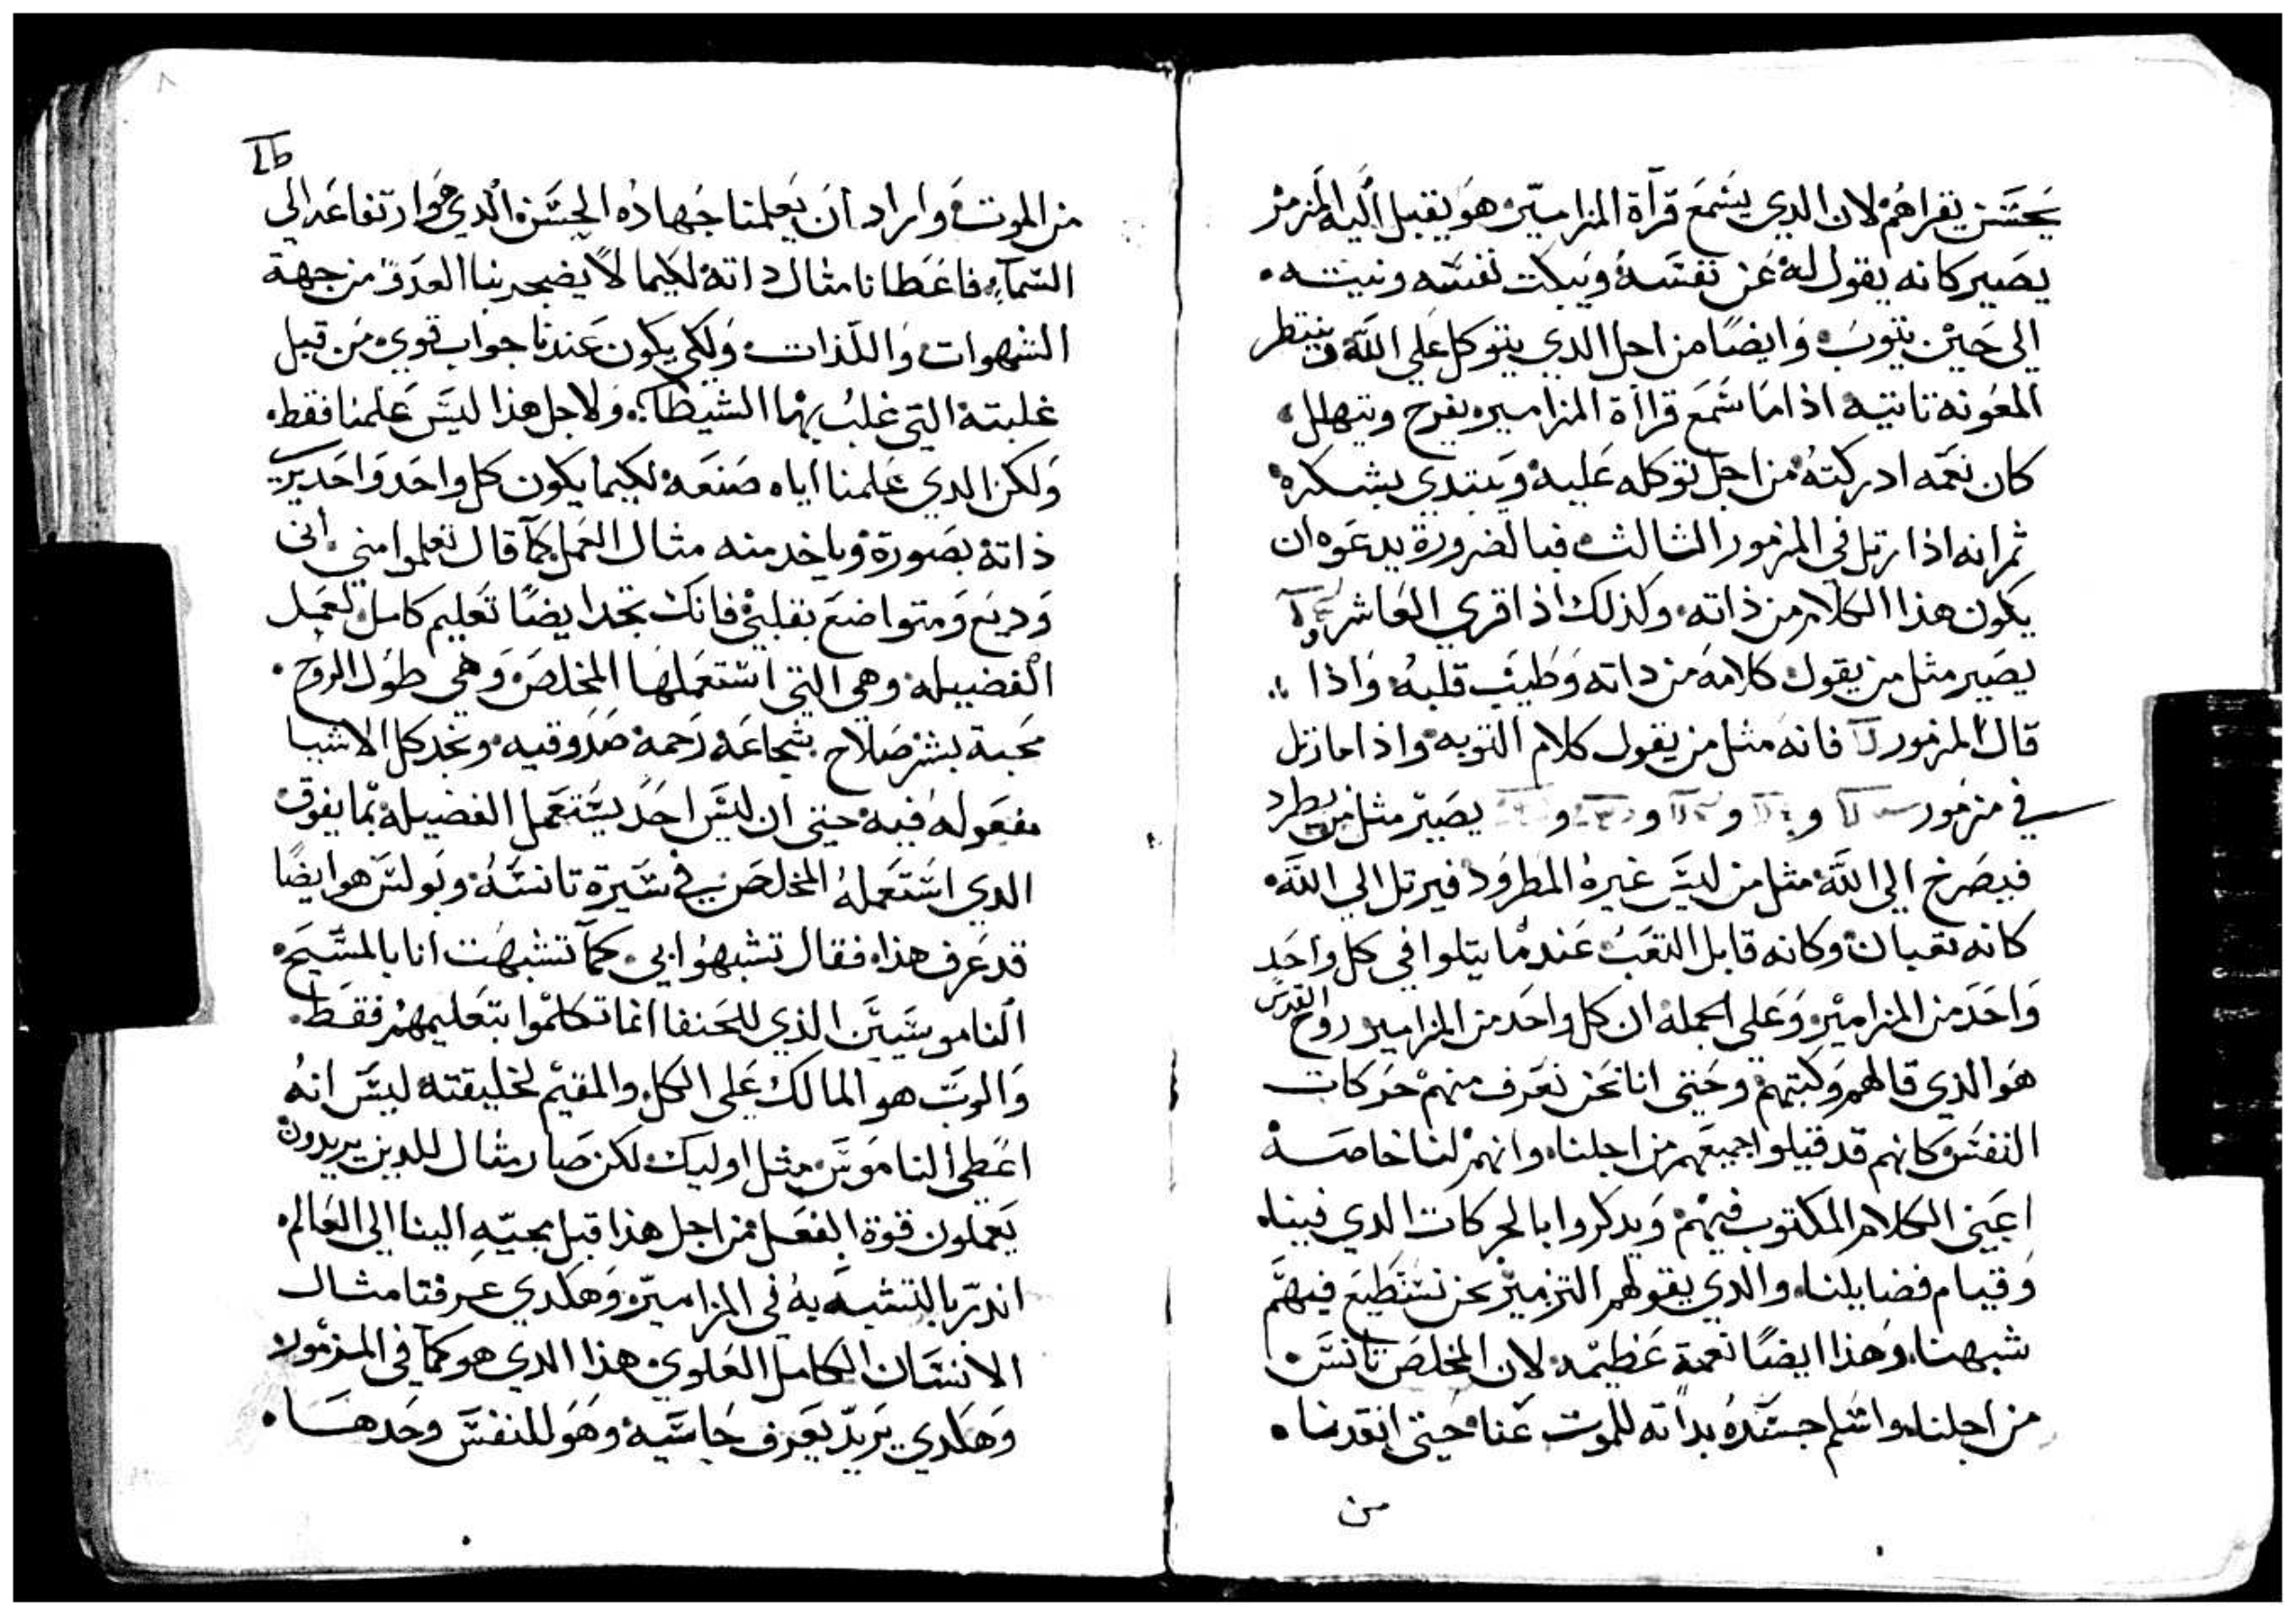 يحسن يقراهم لان الدي يسمع قرآة المزامير هو يقبل اليه المزمر
يصير كانه يقول له عن نفسه ويبكت نفسه ونيته
الى حين يتوب وايضا من اجل الدي يتوكل علي الله وينتظر
المعونه تاتيه اذا ما سمع قراأة المزامير يفرح ويتهلل
كان نعمه ادركته من اجل توكله عليه ويبتدي يشكره
ثم انه اذا رتل في المزمور الثالث فبالضرورة يدعوه ان
يكون هذا الكلام من ذاته وكذلك اذا قري العاشر
يصير مثل من يقول كلامه من داته وطيب قلبه واذا
قال المزمور فانه مثل من يقول كلام التوبه واذا ما رتل
في مزمور و و و و يصير مثل من يطرد
فيصرخ الي الله مثل من ليس غيره المطرود فيرتل الي الله
كانه تعبان وكانه قابل التعب عندما يتلوا في كل واحد
واحد من المزامير وعلي الجمله ان كل واحد من المزامير روح القدس
هو الذي قالهم وكتبهم وحتى انا نحن نعرف منهم حركات
النفس وكانهم قد قيلوا جميعهم من اجلنا وانهم لنا خاصة
اعني الكلام المكتوب فيهم ويدكروا بالحركات الدي فينا
وقيام فضايلنا والدي يقولهم التزمير نحن نستطيع فيهم
شبهنا وهذا ايضا نعمة عظيمه لان المخلص تانس
من اجلنا واسلم جسده بداته للموت عنا حتى انقدنا
من
من الموت واراد ان يعلمنا جهاده الحسن الدي هو ارتفاعه الى
السمآء فاعطانا مثال داته لكيما لا يضجر بنا العدو من جهة
الشهوات واللذات ولكي يكون عندنا جواب قوي من قبل
غلبته التي غلب بها الشيطان ولاجل هذا ليس علمنا فقط
ولكن الدي علمنا اياه صنعه لكيما يكون كل واحد واحد يرى
ذاته بصورة وياخد منه مثال العمل كمآ قال تعلموا مني انى
وديع ومتواضع بقلبي فانك تجد ايضا تعليم كامل لعمل
الفضيله وهي التي استعملها المخلص وهي طول الروح
محبة بشر صلاح شجاعه رحمه صدوقيه وتجد كل الاشيا
مفعوله فيه حتى ان ليس احد يستعمل الفضيله بما يفوق
الدي استعمله المخلص في سيرة تانسه وبولس هو ايضا
قد عرف هذا فقال تشبهوا بي كمآ تشبهت انا بالمسيح
الناموسيين الذي للحنفا انما تكلموا بتعليمهم فقط
والرب هو المالك على الكل والمقيم لخليقته ليس انه
اعطى الناموس مثل اوليك لكن صار مثال للدين يريدون
يعملون قوة الفعل من اجل هذا قبل مجيه الينا الى العالم
اندر بالتشبه به في المزامير وهكدي عرفتا مثال
الانسان الكامل العلوي هذا الدي هو كمآ في المزمور
وهكدي يريد يعرف حاسيه وهو للنفس وحدها